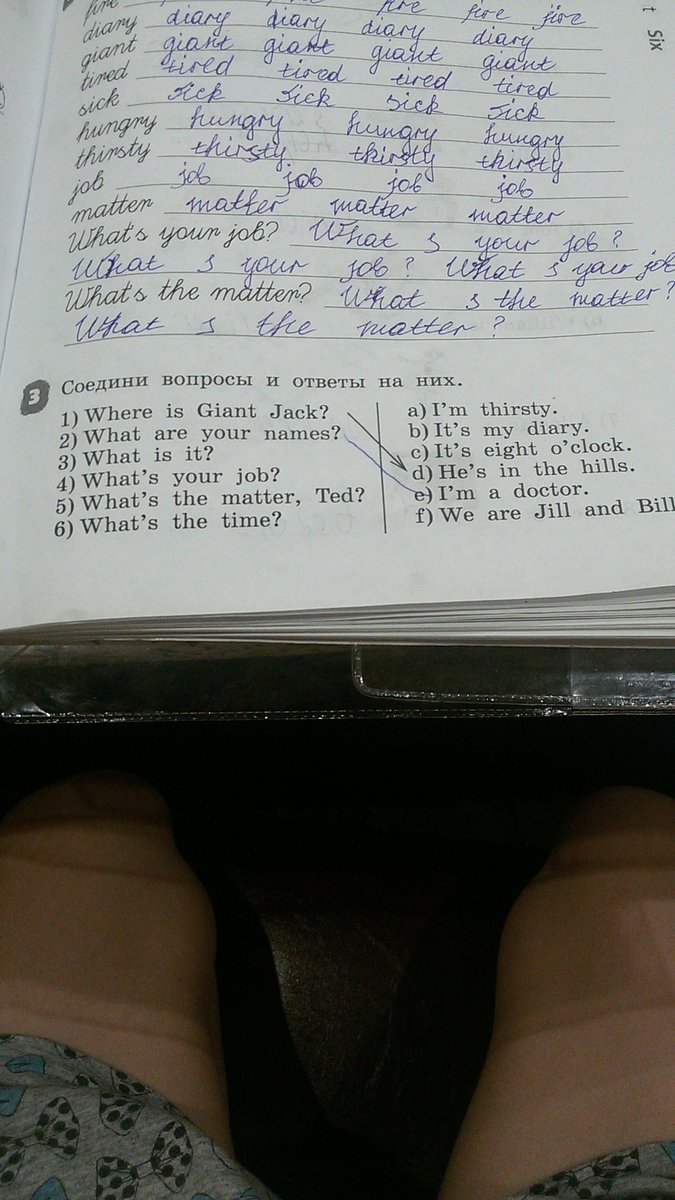 fire fire fire fire
diary diary diary diary diary
giant giant giant giant giant
tired tired tired tired tired
sick sick sick sick sick
hungry hungry hungry hungry
thirsty thirsty thirsty thirsty
job job job job job
matter matter matter matter
What's your job? What s your job?
What s your job? What s your job
What's the matter? What s the matter?
What s the matter?
t Six
3 Соедини вопросы и ответы на них.
1) Where is Giant Jack?
2) What are your names?
3) What is it?
4) What's your job?
5) What's the matter, Ted?
6) What's the time?
a) I'm thirsty.
b) It's my diary.
c) It's eight o'clock.
d) He's in the hills.
e) I'm a doctor.
f) We are Jill and Bill